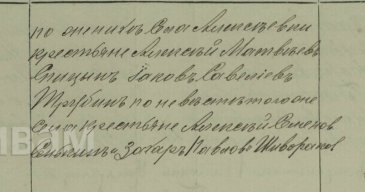 по женихѣ Села Алексѣевки
крестьяне Алексѣй Матвѣевъ
Спицинъ Іаковъ Савеліевъ
Трубинъ по невѣстѣ того же
села крестьяне Алексѣй Семенов
и Захаръ Павловъ